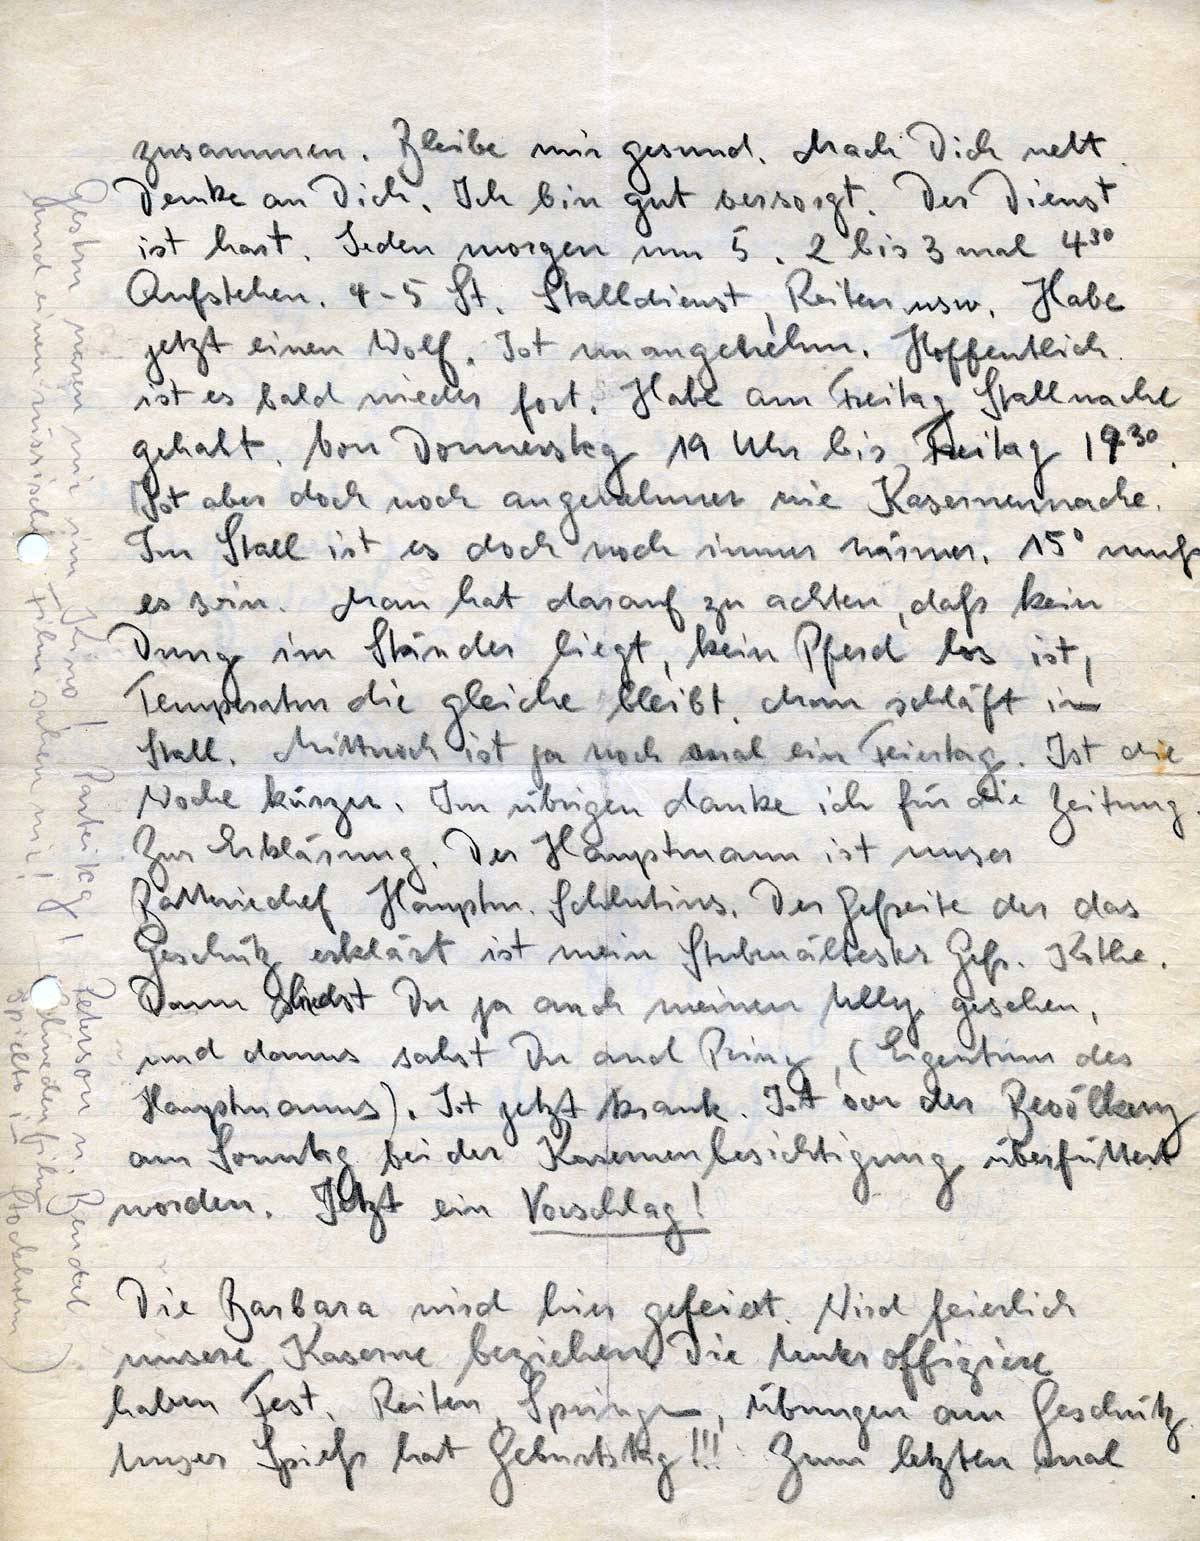 zusammen. Bleibe mir gesund. Mach Dich nett.
Denke an Dich. Ich bin gut versorgt. Der Dienst
ist hart. Jeden morgen um 5. 2 bis 3 mal 4³⁰
Aufstehen. 4-5 St. Stalldienst, Reiten usw. Habe
jetzt einen Wolf. Ist unangenehm. Hoffentlich
ist es bald wieder fort. Habe am Freitag Stallwache
gehabt. Von Donnerstag 19 Uhr bis Freitag 19³⁰.
Ist aber doch noch angenehmer wie Kasernenwache.
Im Stall ist es doch noch immer wärmer. 15° muß
es sein. Man hat darauf zu achten, daß kein
Dung im Ständer liegt, kein Pferd los ist,
Temperatur die gleiche bleibt. Man schläft im
Stall. Mittwoch ist ja noch mal ein Feiertag. Ist die
Woche kürzer. Im übrigen danke ich für die Zeitung.
Zur Erklärung. Der Hauptmann ist unser
Batteriechef Hauptm. Der Gefreite der das
Geschütz erklärt ist mein Stubenältester Gefr. Kothe.
Dann Du ja auch meinen gesehen,
und dann sahst Du auch Prinz, (Eigentum des
Hauptmanns). Ist jetzt krank. Ist von der Bevölkerung
am Sonntag bei der Kasernenbesichtigung überfüttert
worden. Jetzt ein Vorschlag!
Die Barbara wird hier gefeiert. Wird feierlich
unsere Kaserne beziehen. Die Unteroffiziere
haben Fest. Reiten, Springen, Übungen am Geschütz
Unser Spieß hat Geburtstag!!! Zum letzten mal
Gestern waren wir im Kino! Parteitag! Peterson u. Bendel
und einen russischen Film sahen wir! (Schwedenfilm
Spielte in Stockholm)